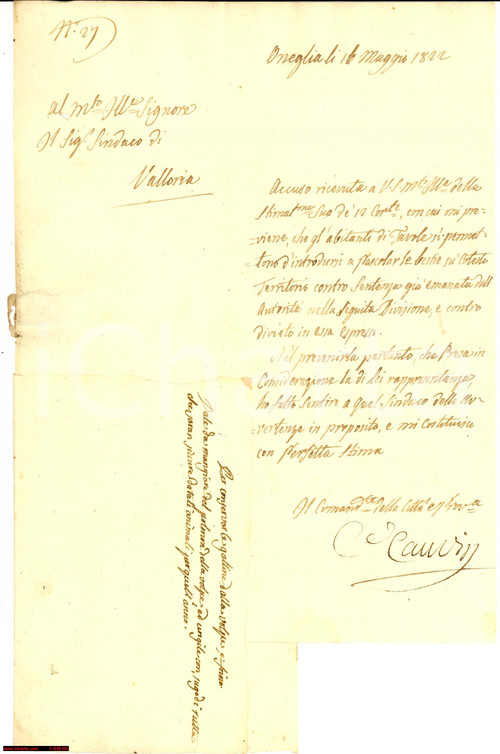 N.° 27
Oneglia li 16 Maggio 1822
Al M.to Ill.e Signore
Il Sig.r Sindaco di
Valloria
Accuso ricevuta a V.S. M.to Ill.e della
Stimat.ma Sua de' 12 Corr.te, con cui mi pre=
=viene, che gl'abitanti di Tavole si permet=
=tono d'introdursi a pascolar le bestie su cotesto
Territorio contro Sentenza già emanata dall'
Autorità nella seguita Divisione, e contro
divieto in essa espresso.
Nel prevenirla pertanto, che Presa in
Considerazione la di lei rappresentanza,
ho fatto Sentire a quel Sindaco delle Av=
=vertenze in proposito, e mi Costituisco
con Perfetta Stima
Il Comand.te della Città e Prov.a
Cauvin
Per conservar le galline dalla volpe, e
dale da mangiare del polmon della volpe, ed
che saran sicure da tali animali per quell'anno.